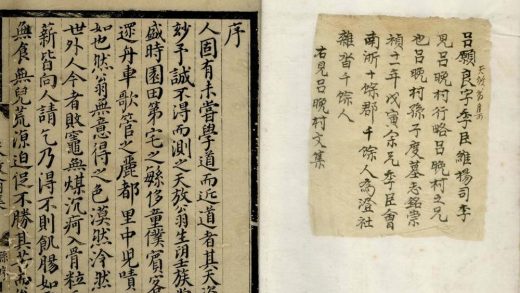 呂願良字季臣維揚司李
見呂晚村行略呂晚村之兄
也呂晚村孫子度墓志銘崇
禎十一年戊寅余兄季臣會
南浙十餘郡千餘人為澄社
雜沓千餘人
右見呂晚村文集
序
人固有未嘗學道而近道者其天資
妙予誠不得而測之天放翁生明士族
盛時園田第宅之縣侈童僕賓客
還丹車歌管之麗都里中兒嘖
如也然翁無意得之色漠然泠然
世外人今者敗竈無煤沉疴入骨粒
薪皆向人請乞乃得不則飢腸如
無食無兒荒源迫促不勝其苦而